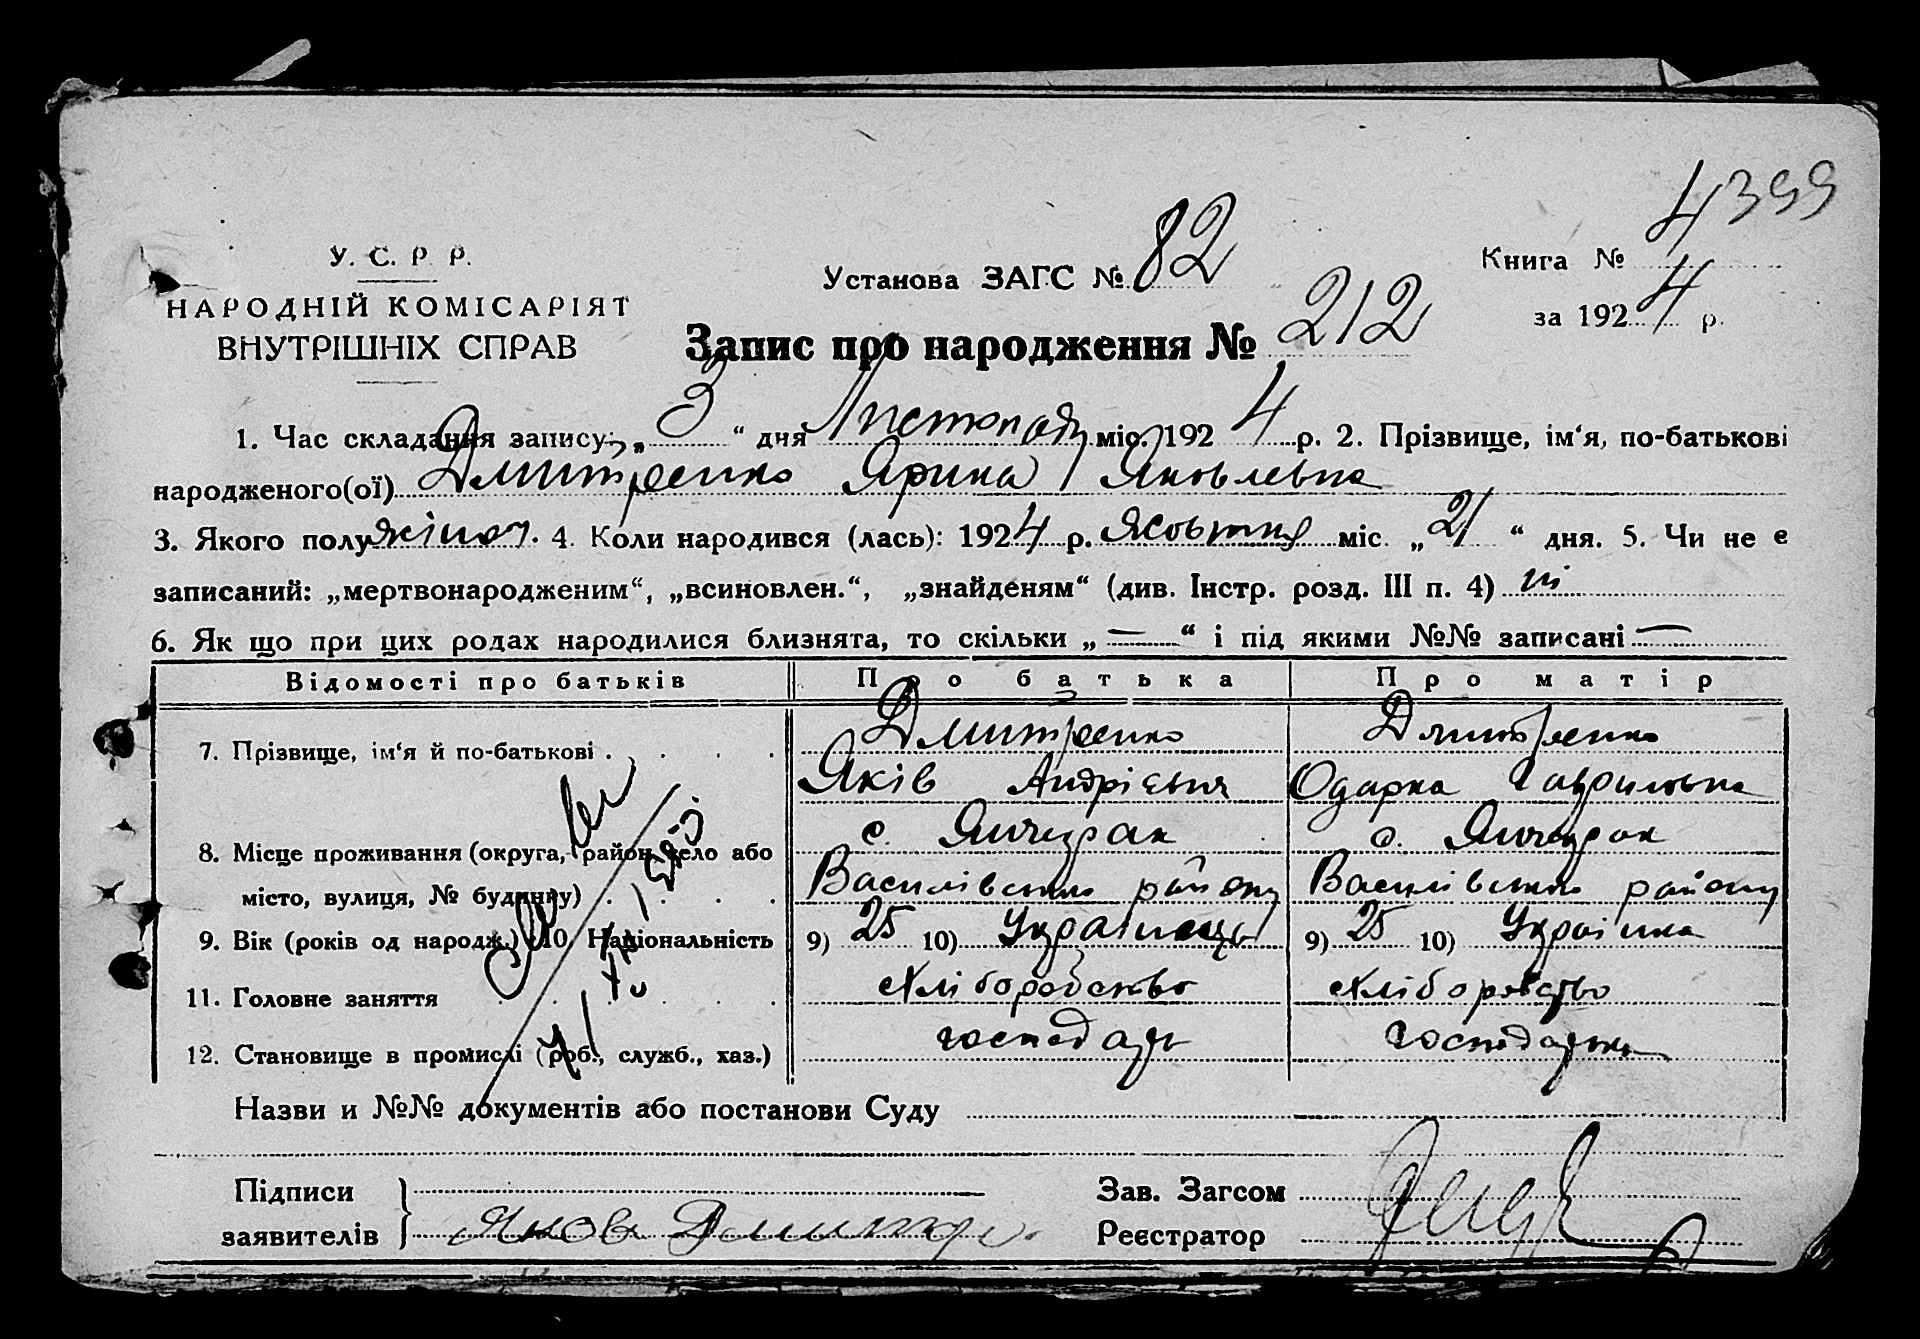 4399
У. С. Р. Р.
НАРОДНІЙ КОМІСАРІЯТ
ВНУТРІШНІХ СПРАВ
Установа ЗАГС № 82
Книга №
за 1924 р.
Запис про народження № 212
1. Час складання запису: „3“ дня Листопаду міс. 1924 р. 2. Прізвище, ім‘я, по-батькові
народженого(ої) Дмитренко Ярина Яковлевна
3. Якого полу жіноч. 4. Коли народився (лась): 1924 р. Жовтня міс. „21“ дня. 5. Чи не є
записаний: „мертвонародженим“, „всиновлен.“, „знайденям“ (див. Інстр. розд. III п. 4) ні
6. Як що при цих родах народилися близнята, то скільки „—“ і під якими №№ записані —
Відомості про батьків Про батька Про матір
7. Прізвище, ім‘я й по-батькові Дмитренко Дмитренко
Яків Андрієвич Одарка Гавриловна
8. Місце проживання (округа, район, село або с. Янчекрак с. Янчекрак
місто, вулиця, № будинку) Василівського району Василівського району
9. Вік (років од народж.) 10. Національність 9) 25 10) Українець 9) 25 10) Українка
11. Головне заняття хліборобство хліборобство
12. Становище в промислі (роб., служб., хаз.) господарь господарька
Назви и №№ документів або постанови Суду
Підписи
заявителів Яков Дмитр
Зав. Загсом
Реєстратор